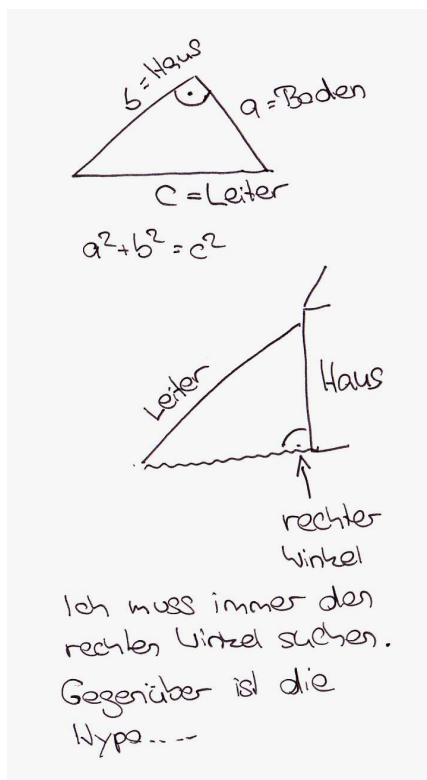 b = Haus
a = Boden
c = Leiter
a²+b² = c²
Leiter
Haus
rechter
Winkel
Ich muss immer den
rechten Winkel suchen.
Gegenüber ist die
Hypo....